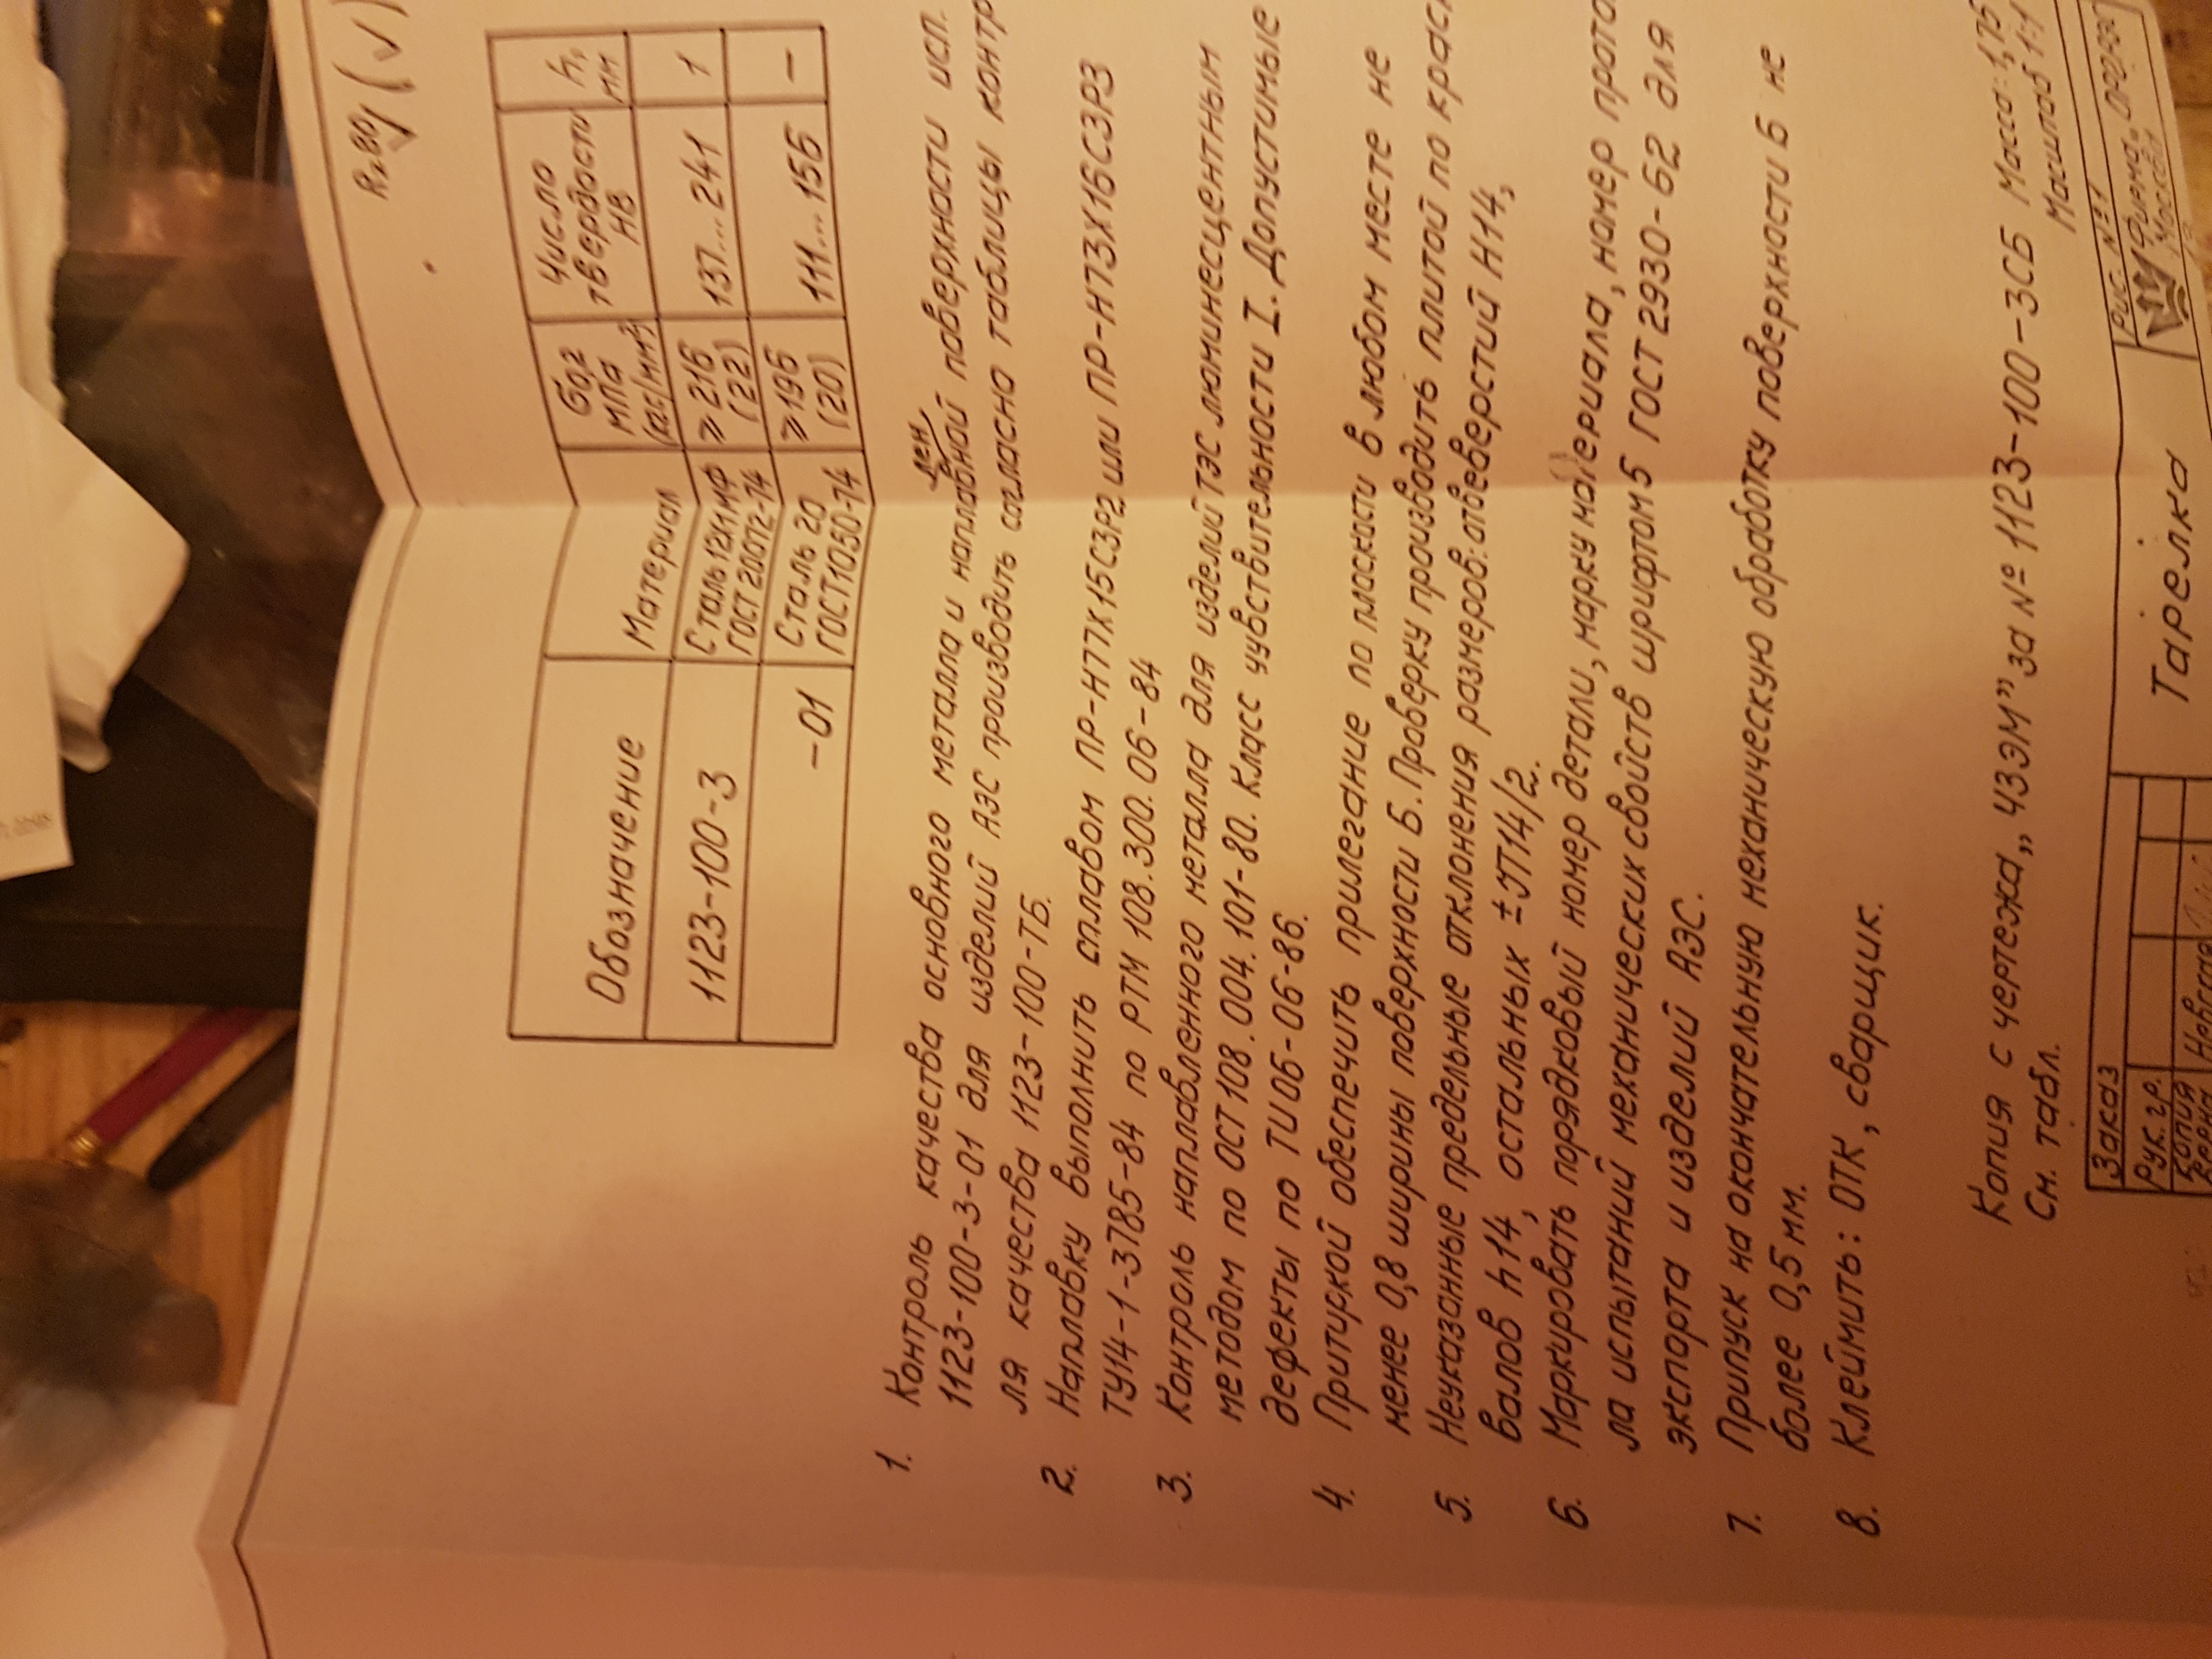 Rz80 (√)
Обозначение Материал σ0,2 МПа (кгс/мм²) Число твердости НВ h, мм
1123-100-3 Сталь 12МХ1МФ ГОСТ 20072-74 ≥216 (22) 137...241 1
-01 Сталь 20 ГОСТ 1050-74 ≥196 (20) 111...156 –
1. Контроль качества основного металла и наплавной поверхности исп.
лен
1123-100-3-01 для изделий АЭС производить согласно таблицы контр
ля качества 1123-100-ТБ.
2. Наплавку выполнить сплавом ПР-Н77Х15С3Р2 или ПР-Н73Х16С3Р3
ТУ14-1-3785-84 по РТМ 108.300.06-84
3. Контроль наплавленного металла для изделий ТЭС люминесцентным
методом по ОСТ 108.004.101-80. Класс чувствительности I. Допустимые
дефекты по ТИ 06-06-86.
4. Притиркой обеспечить прилегание по плоскости в любом месте не
менее 0,8 ширины поверхности Б. Проверку производить плитой по крас
5. Неуказанные предельные отклонения размеров: отвеверстий Н14,
валов h14, остальных ±JT14/2.
6. Маркировать порядковый номер детали, марку материала, номер прото
ла испытаний механических свойств шрифтом 5 ГОСТ 2930-62 для
экспорта и изделий АЭС.
7. Припуск на окончательную механическую обработку поверхности Б не
более 0,5 мм.
8. Клеймить: ОТК, сварщик.
Копия с чертежа „ЧЗЭМ” за № 1123-100-3СБ Масса: 1,75
См. табл. Масштаб 1:1
Заказ
Рук. гр.
Копия
Тарелка
Рис. №1
Москва